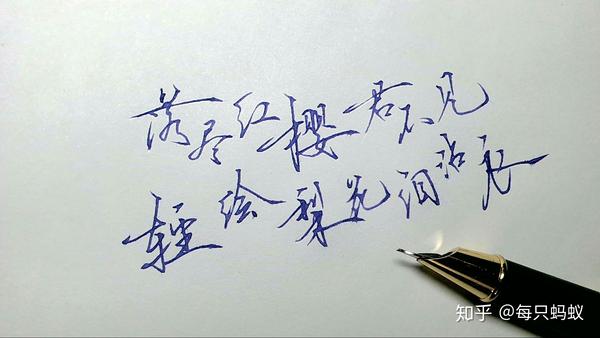 落尽红樱君不见
輕绘梨花泪沾衣
知乎 @每只蚂蚁